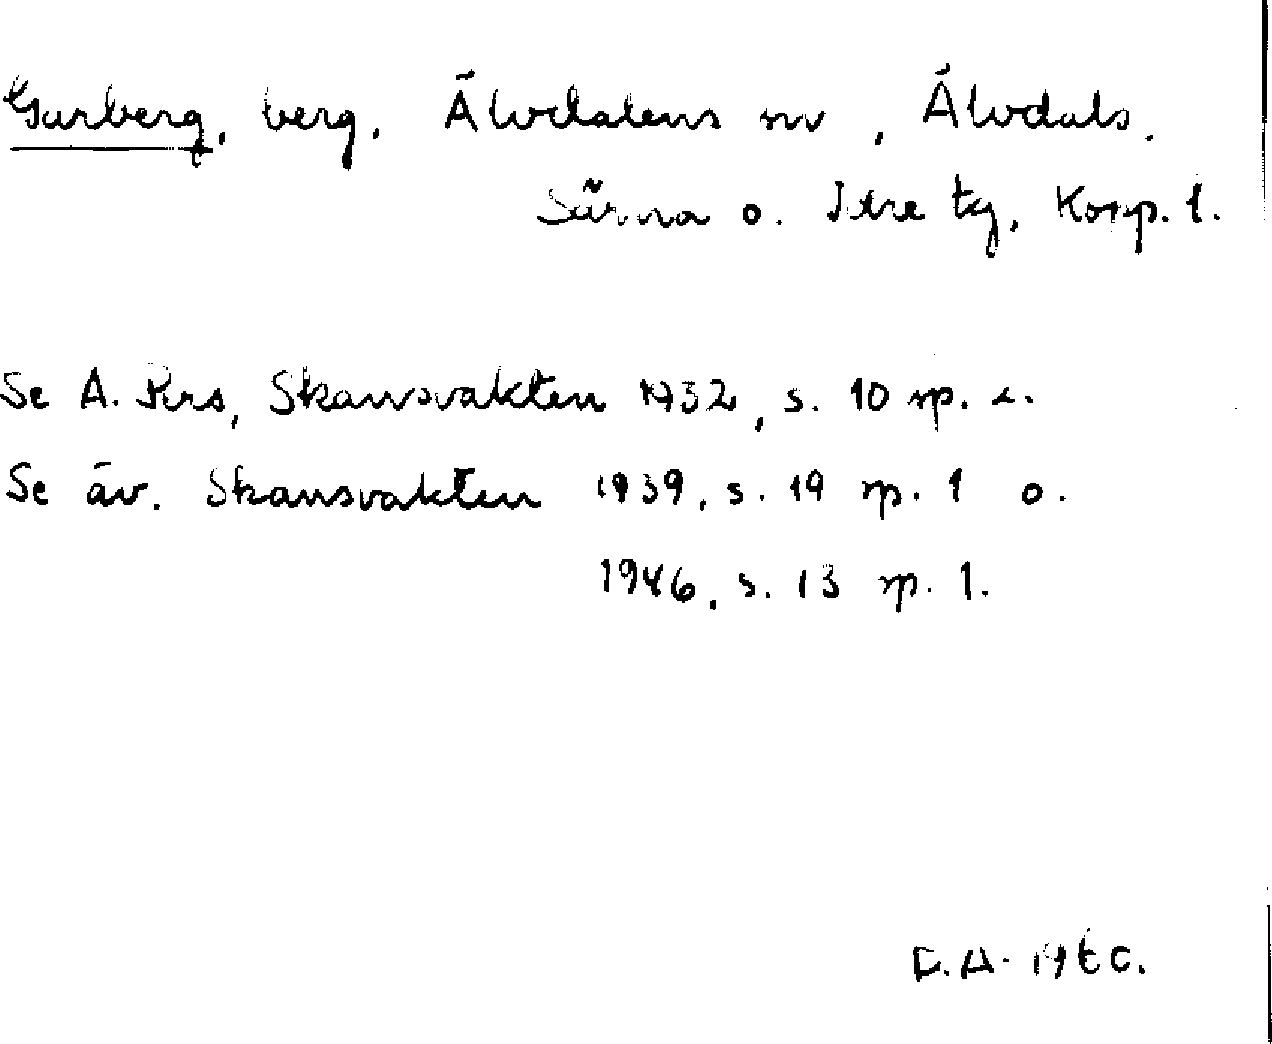 Gurberg, berg. Älvdalens sn, Älvdals.
Särna o. Idre tg, Kopp. l.
Se A. Prs, Skansvakten 1932, s. 10 sp. 2.
Se äv. Skansvakten 1939, s. 19 sp. 1 o.
1946, s. 13 sp. 1.
D.A. 1960.